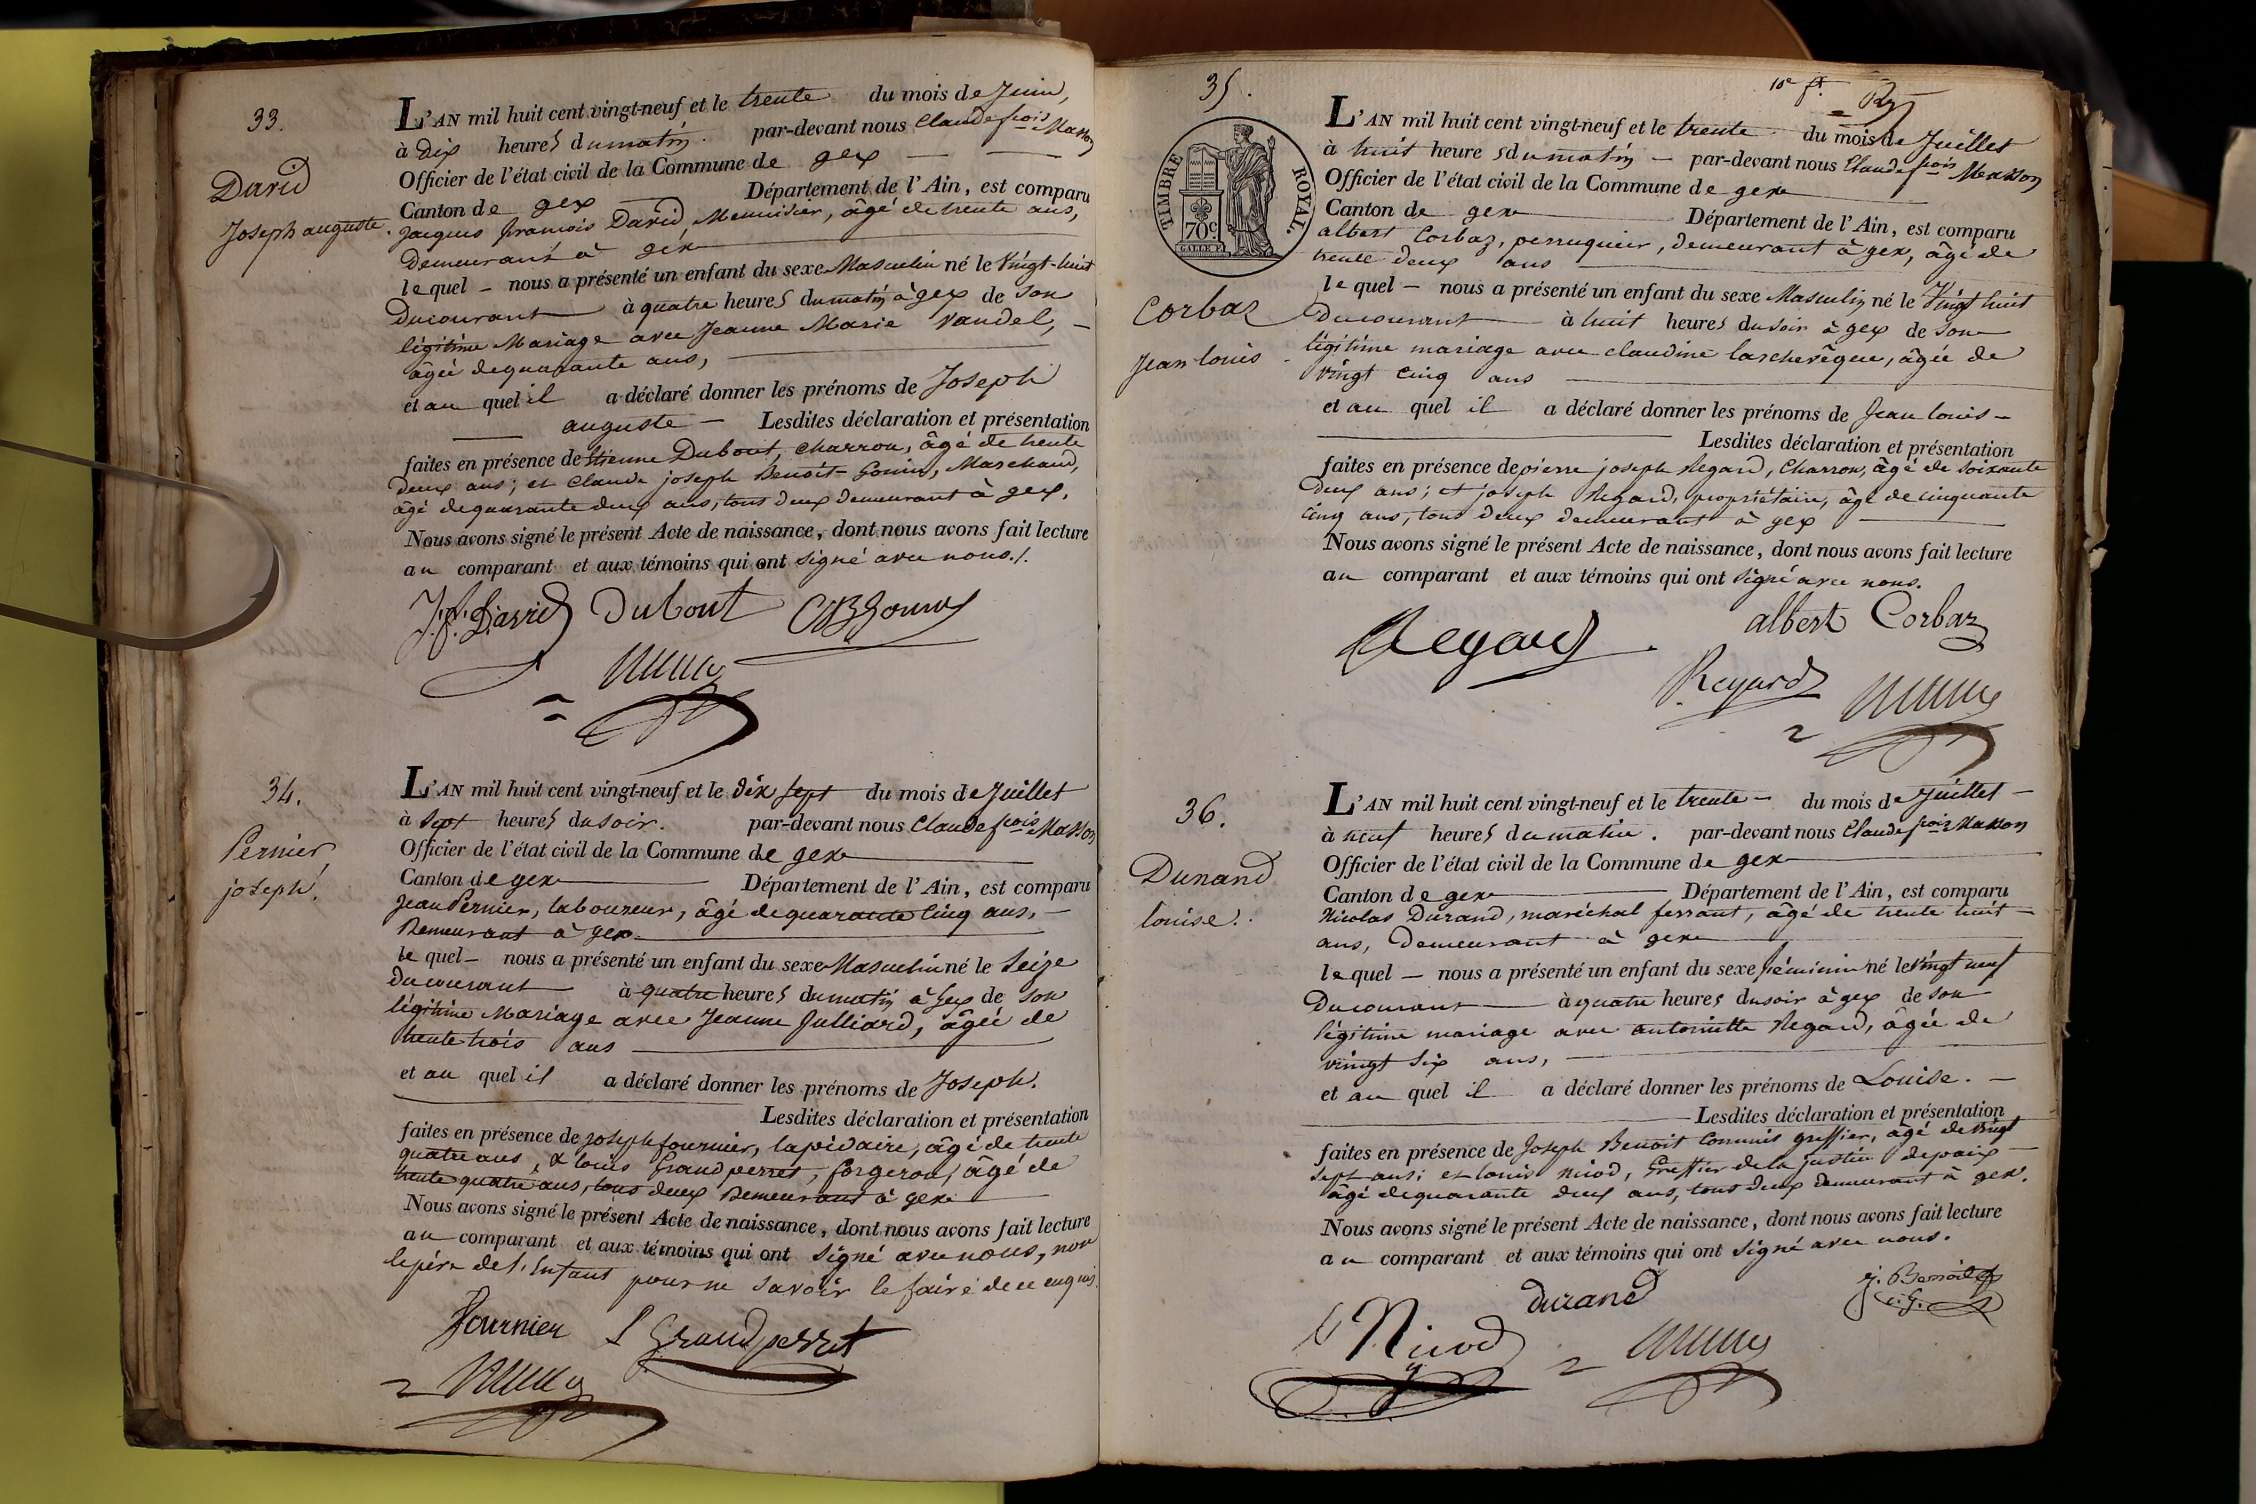 33.
David
Joseph auguste.
L'AN mil huit cent vingt-neuf et le trente du mois de Juin,
à dix heures du matin. par-devant nous Claude fçois Masson
Officier de l'état civil de la Commune de gex
Canton de gex Département de l'Ain, est comparu
Jacques François David, Menuisier, âgé de trente ans,
demeurant à gex
le quel nous a présenté un enfant du sexe Masculin né le Vingt-huit
du courant à quatre heures du matin à gex de son
légitime Mariage avec Jeanne Marie Vandel,
âgée de quarante ans,
et au quel il a déclaré donner les prénoms de Joseph
auguste Lesdites déclaration et présentation
faites en présence de Etienne Dubout, charron, âgé de trente
deux ans; et Claude joseph Benoit-Gonin, Marchand,
âgé de quarante deux ans, tous deux demeurant à gex.
Nous avons signé le présent Acte de naissance, dont nous avons fait lecture
au comparant et aux témoins qui ont signé avec nous./.
J.f. David Dubout
34.
Pernier,
joseph.
L'AN mil huit cent vingt-neuf et le dix sept du mois de Juillet
à sept heures du soir. par-devant nous Claude fçois Masson
Officier de l'état civil de la Commune de gex
Canton de gex Département de l'Ain, est comparu
Jean Pernier, laboureur, âgé de quarante cinq ans,
Demeurant à gex
le quel nous a présenté un enfant du sexe Masculin né le Seize
du courant à quatre heures du matin à Gex de son
légitime Mariage avec Jeanne Julliard, âgée de
trente trois ans
et au quel il a déclaré donner les prénoms de Joseph.
Lesdites déclaration et présentation
faites en présence de joseph fournier, lapidaire, âgé de trente
quatre ans, & louis Grandperret, forgeron, âgé de
trente quatre ans, tous deux Demeurant à gex
Nous avons signé le présent Acte de naissance, dont nous avons fait lecture
au comparant et aux témoins qui ont signé avec nous, non
le père de l'Enfant pour ne savoir le faire de ce enquis.
Fournier L Grandperret
35.
TIMBRE ROYAL.
70c.
Corbaz
Jean louis
L'AN mil huit cent vingt-neuf et le trente du mois de Juillet
à huit heures du matin par-devant nous Claude fçois Masson
Officier de l'état civil de la Commune de gex
Canton de gex Département de l'Ain, est comparu
albert Corbaz, perruquier, demeurant à gex, âgé de
trente deux ans
le quel nous a présenté un enfant du sexe Masculin né le Vingt huit
du courant à huit heures du soir à gex de son
légitime mariage avec claudine larchevêque, âgée de
vingt cinq ans
et au quel il a déclaré donner les prénoms de Jean louis
Lesdites déclaration et présentation
faites en présence de pierre joseph Regard, Charron, âgé de soixante
deux ans; et joseph Regard, propriétaire, âgé de cinquante
cinq ans, tous deux demeurant à gex
Nous avons signé le présent Acte de naissance, dont nous avons fait lecture
au comparant et aux témoins qui ont signé avec nous.
albert Corbaz
Regard
Regard
36.
Dunand
louise.
L'AN mil huit cent vingt-neuf et le trente du mois de Juillet
à neuf heures du matin. par-devant nous Claude fçois Masson
Officier de l'état civil de la Commune de gex
Canton de gex Département de l'Ain, est comparu
Nicolas Durand, maréchal ferrant, âgé de trente huit
ans, Demeurant à gex
le quel nous a présenté un enfant du sexe féminin né le Vingt neuf
du courant à quatre heures du soir à gex de son
légitime mariage avec antoinette Regard, âgée de
vingt six ans,
et au quel il a déclaré donner les prénoms de Louise.
Lesdites déclaration et présentation
faites en présence de Joseph Benoit Commis greffier, âgé de vingt
sept ans; et louis Nicod, Greffier de la justice de paix
âgé de quarante deux ans, tous deux demeurant à gex.
Nous avons signé le présent Acte de naissance, dont nous avons fait lecture
au comparant et aux témoins qui ont signé avec nous.
durand
j. Benoit
c. G.
Nicod